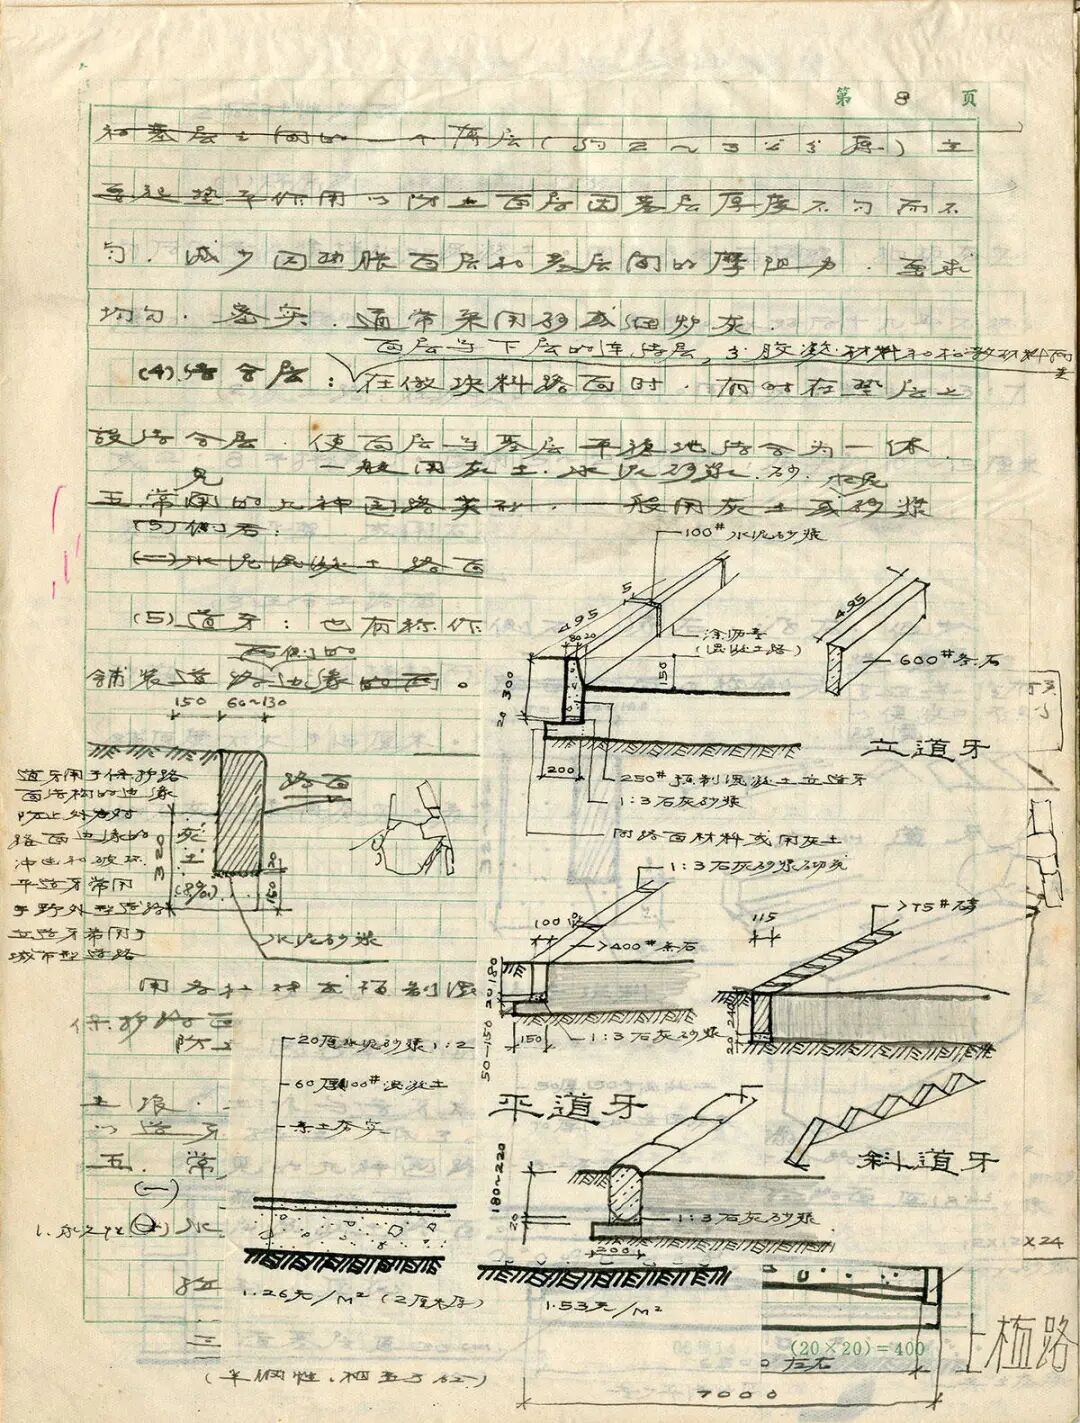 第 8 页
和基层之间的一个薄层(约2~3公分厚)主
要起垫平作用以防止面层因基层厚度不匀而不
匀.减少因热胀面层和基层间的摩阻力.要求
均匀.密实.通常采用砂或细炉灰.
面层与下层的连结层,
胶凝材料和松散材料
(4)结合层:在做块料路面时.有时在垫层上
设结合层.使面层与基层平稳地结合为一体.
一般用灰土.水泥砂浆.砂.
见
水泥
五.常用的几种园路类型.一般用灰土或砂浆
(5)侧石:
(一)水泥混凝土路面
(5)道牙:也有称作
两侧的
铺装道路边缘的
150 60~130
路面
道牙用于保护路
面结构的边缘
防止外力对
路面边缘的
冲击和破坏.
平道牙常用
于野外型道路
立道牙常用于
城市型道路
320
夯土
(8%)
20
150
水泥砂浆
100#水泥砂浆
5
495
80 20
涂沥青
(混凝土路)
150
300
20
200
495
600#条石
立道牙
250#预制混凝土立道牙
1:3石灰砂浆
同路面材料或用灰土
1:3石灰砂浆砌
100
400#条石
20 180
50—150
150
1:3石灰砂浆
115
75#砖
240
20
平道牙
斜道牙
180~220
20
200
1:3石灰砂浆
保护路面
防止
20厚水泥砂浆1:2
60厚100#混凝土
素土夯实
土壤.
五.常
(一)
水
1.26元/M² (2厘米厚)
1.53元/M²
×24
(20×20)=400
0 左右
7000
上植路